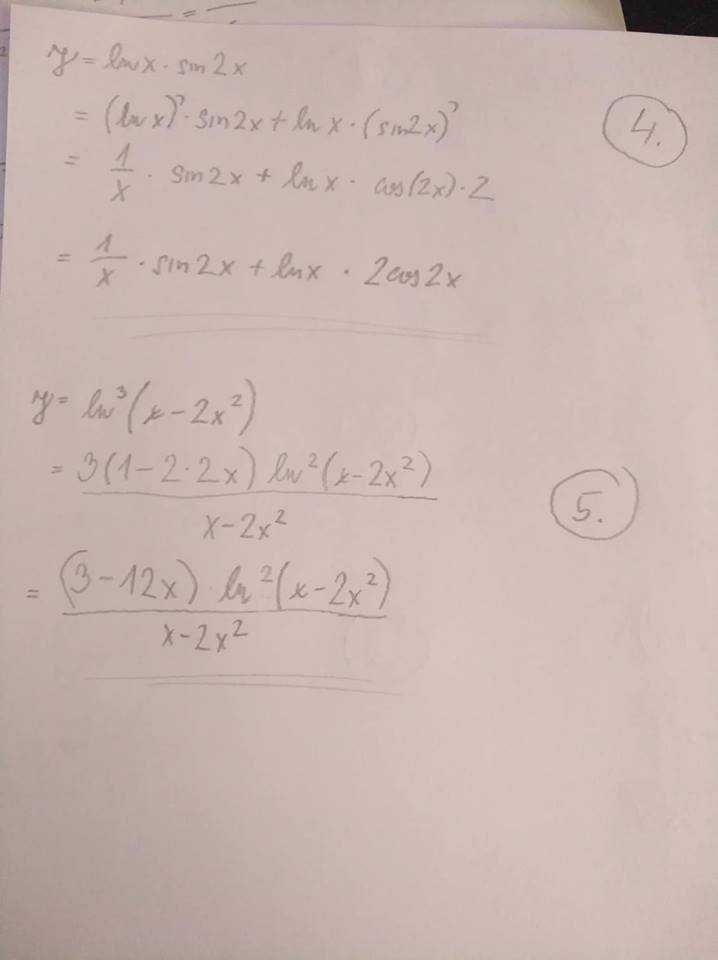 y = ln x · sin 2x
= (ln x)' · sin2x + ln x · (sin2x)'
4.
= 1/x · sin2x + ln x · cos(2x) · 2
= 1/x · sin2x + lnx · 2cos2x
y = ln³(x - 2x²)
= 3(1 - 2·2x) ln²(x - 2x²) / x - 2x²
5.
= (3 - 12x) · ln²(x - 2x²) / x - 2x²